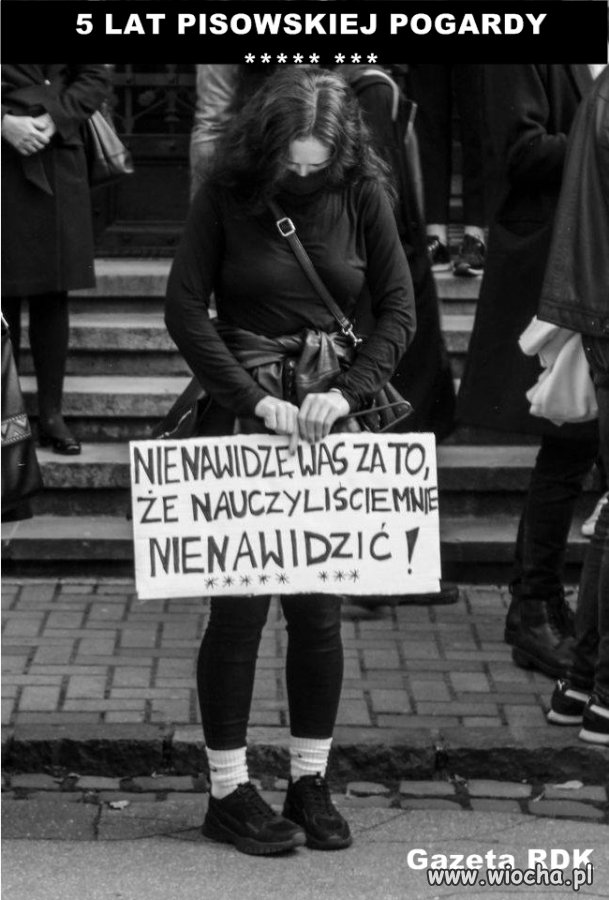 5 LAT PISOWSKIEJ POGARDY
***** ***
NIENAWIDZĘ WAS ZA TO,
ŻE NAUCZYLIŚCIE MNIE
NIENAWIDZIĆ!
***** ***
Gazeta RDK
www.wiocha.pl